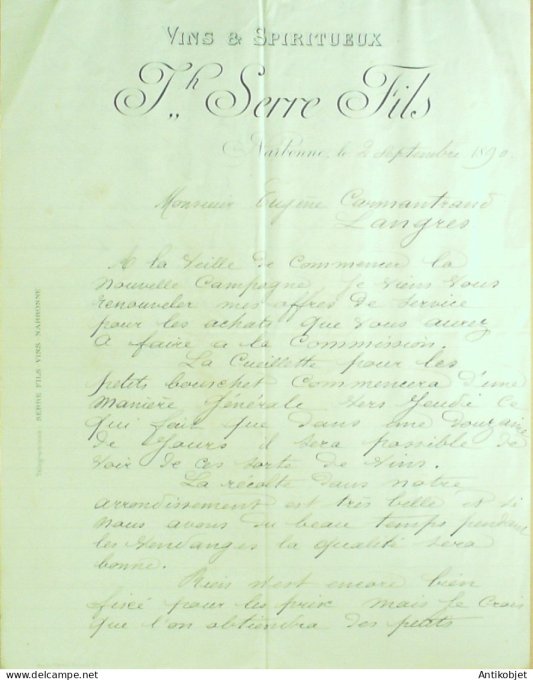 VINS & SPIRITUEUX
J.h Serre Fils
Narbonne, le 2 Septembre 1890.
Monsieur Eugène Carmantrand
Langres
A la Veille de Commencer la
Nouvelle Campagne Je Viens Vous
renouveler mes offres de Service
pour les achats que Vous aurez
A faire a la Commission.
La Cueillette pour les
petits bouschet Commencera d'une
Manière Générale Vers Jeudi Ce
qui fait que dans une douzaine
de Jours il sera possible de
Voir de ces sorte de Vins.
La récolte dans notre
arrondissement est très belle et si
Nous avons du beau temps pendant
les Vendanges la qualité sera
bonne.
Rien n'est encore bien
fixé pour les prix mais Je Crois
que l'on obtiendra des petits
SERRE FILS VINS NARBONNE
© Antikobjet
www.delcampe.net